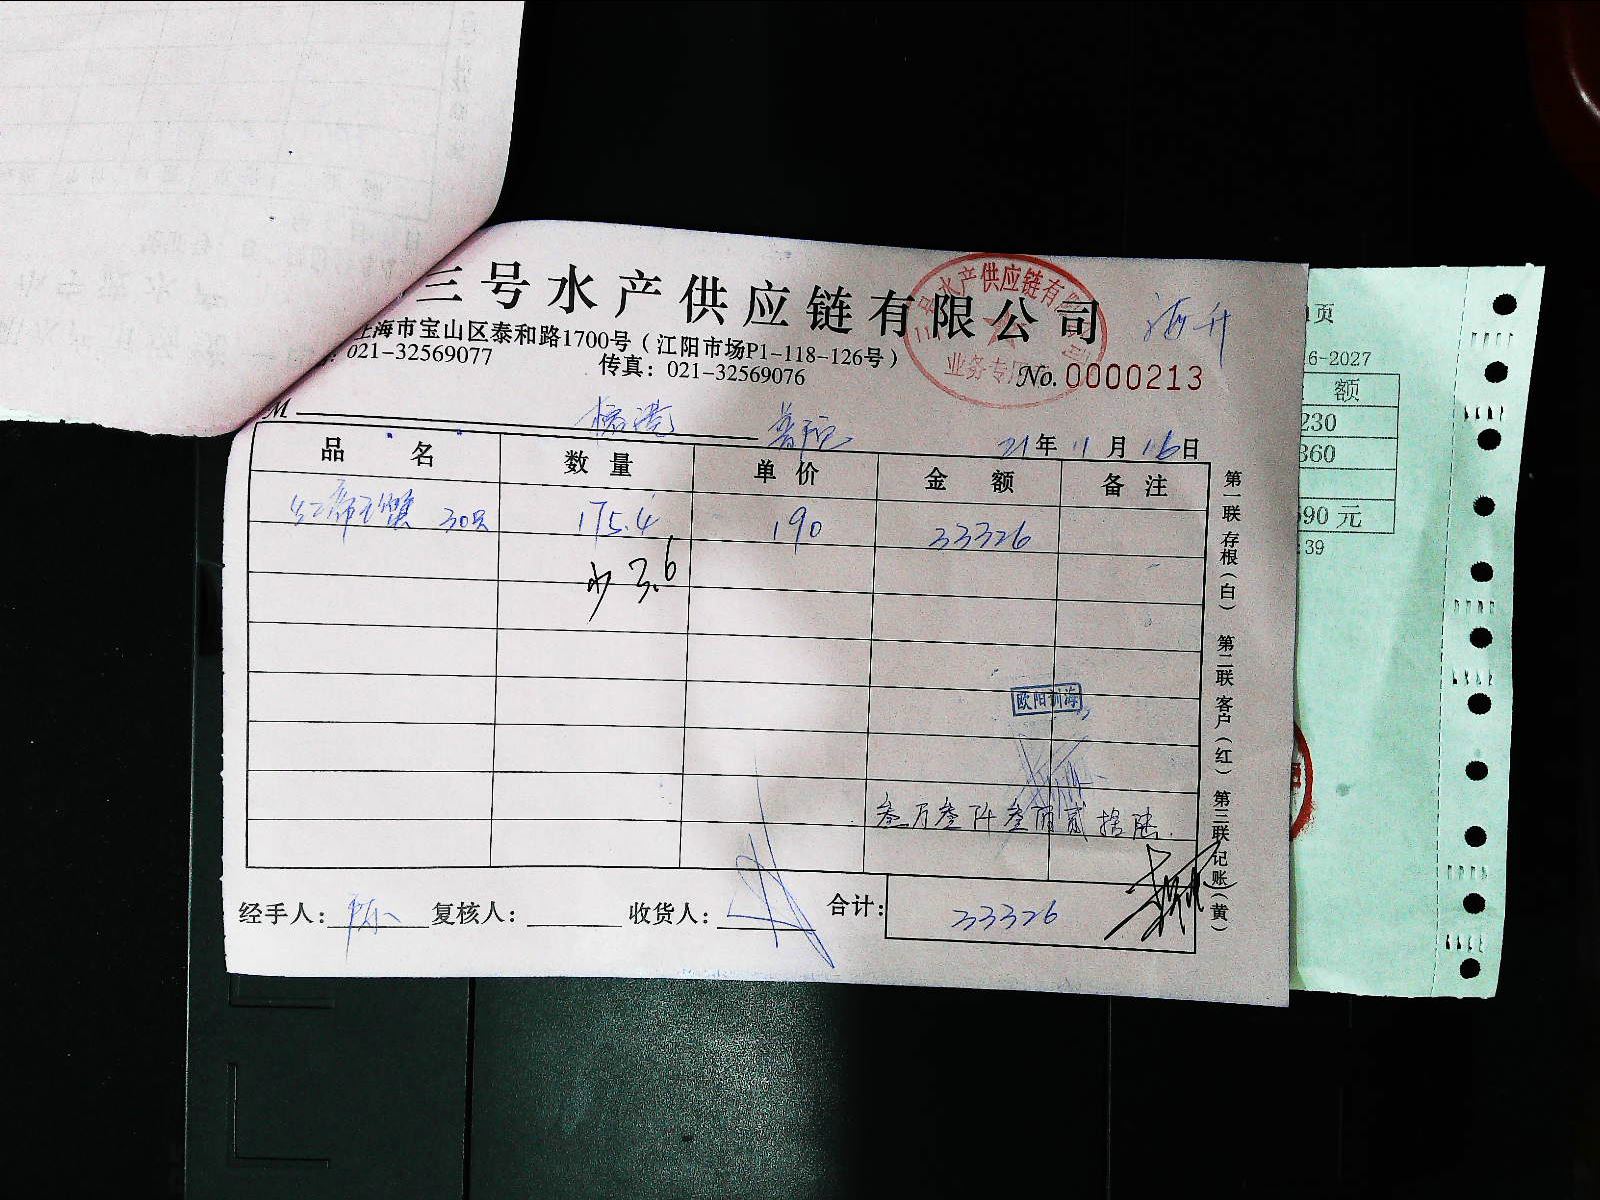 三号水产供应链有限公司
海升
上海市宝山区泰和路1700号（江阳市场P1-118-126号）
：021-32569077 传真：021-32569076
三号水产供应链有限公司
业务专用
No.0000213
M 21年11月16日
品名 数量 单价 金额 备注
30只 175.4 190 33326
少3.6
欧阳训海
叁万叁仟叁佰贰拾陆
经手人：陈 复核人： 收货人： 合计：33326
第一联 存根（白） 第二联 客户（红） 第三联 记账（黄）
页
6-2027
额
230
360
590 元
:39